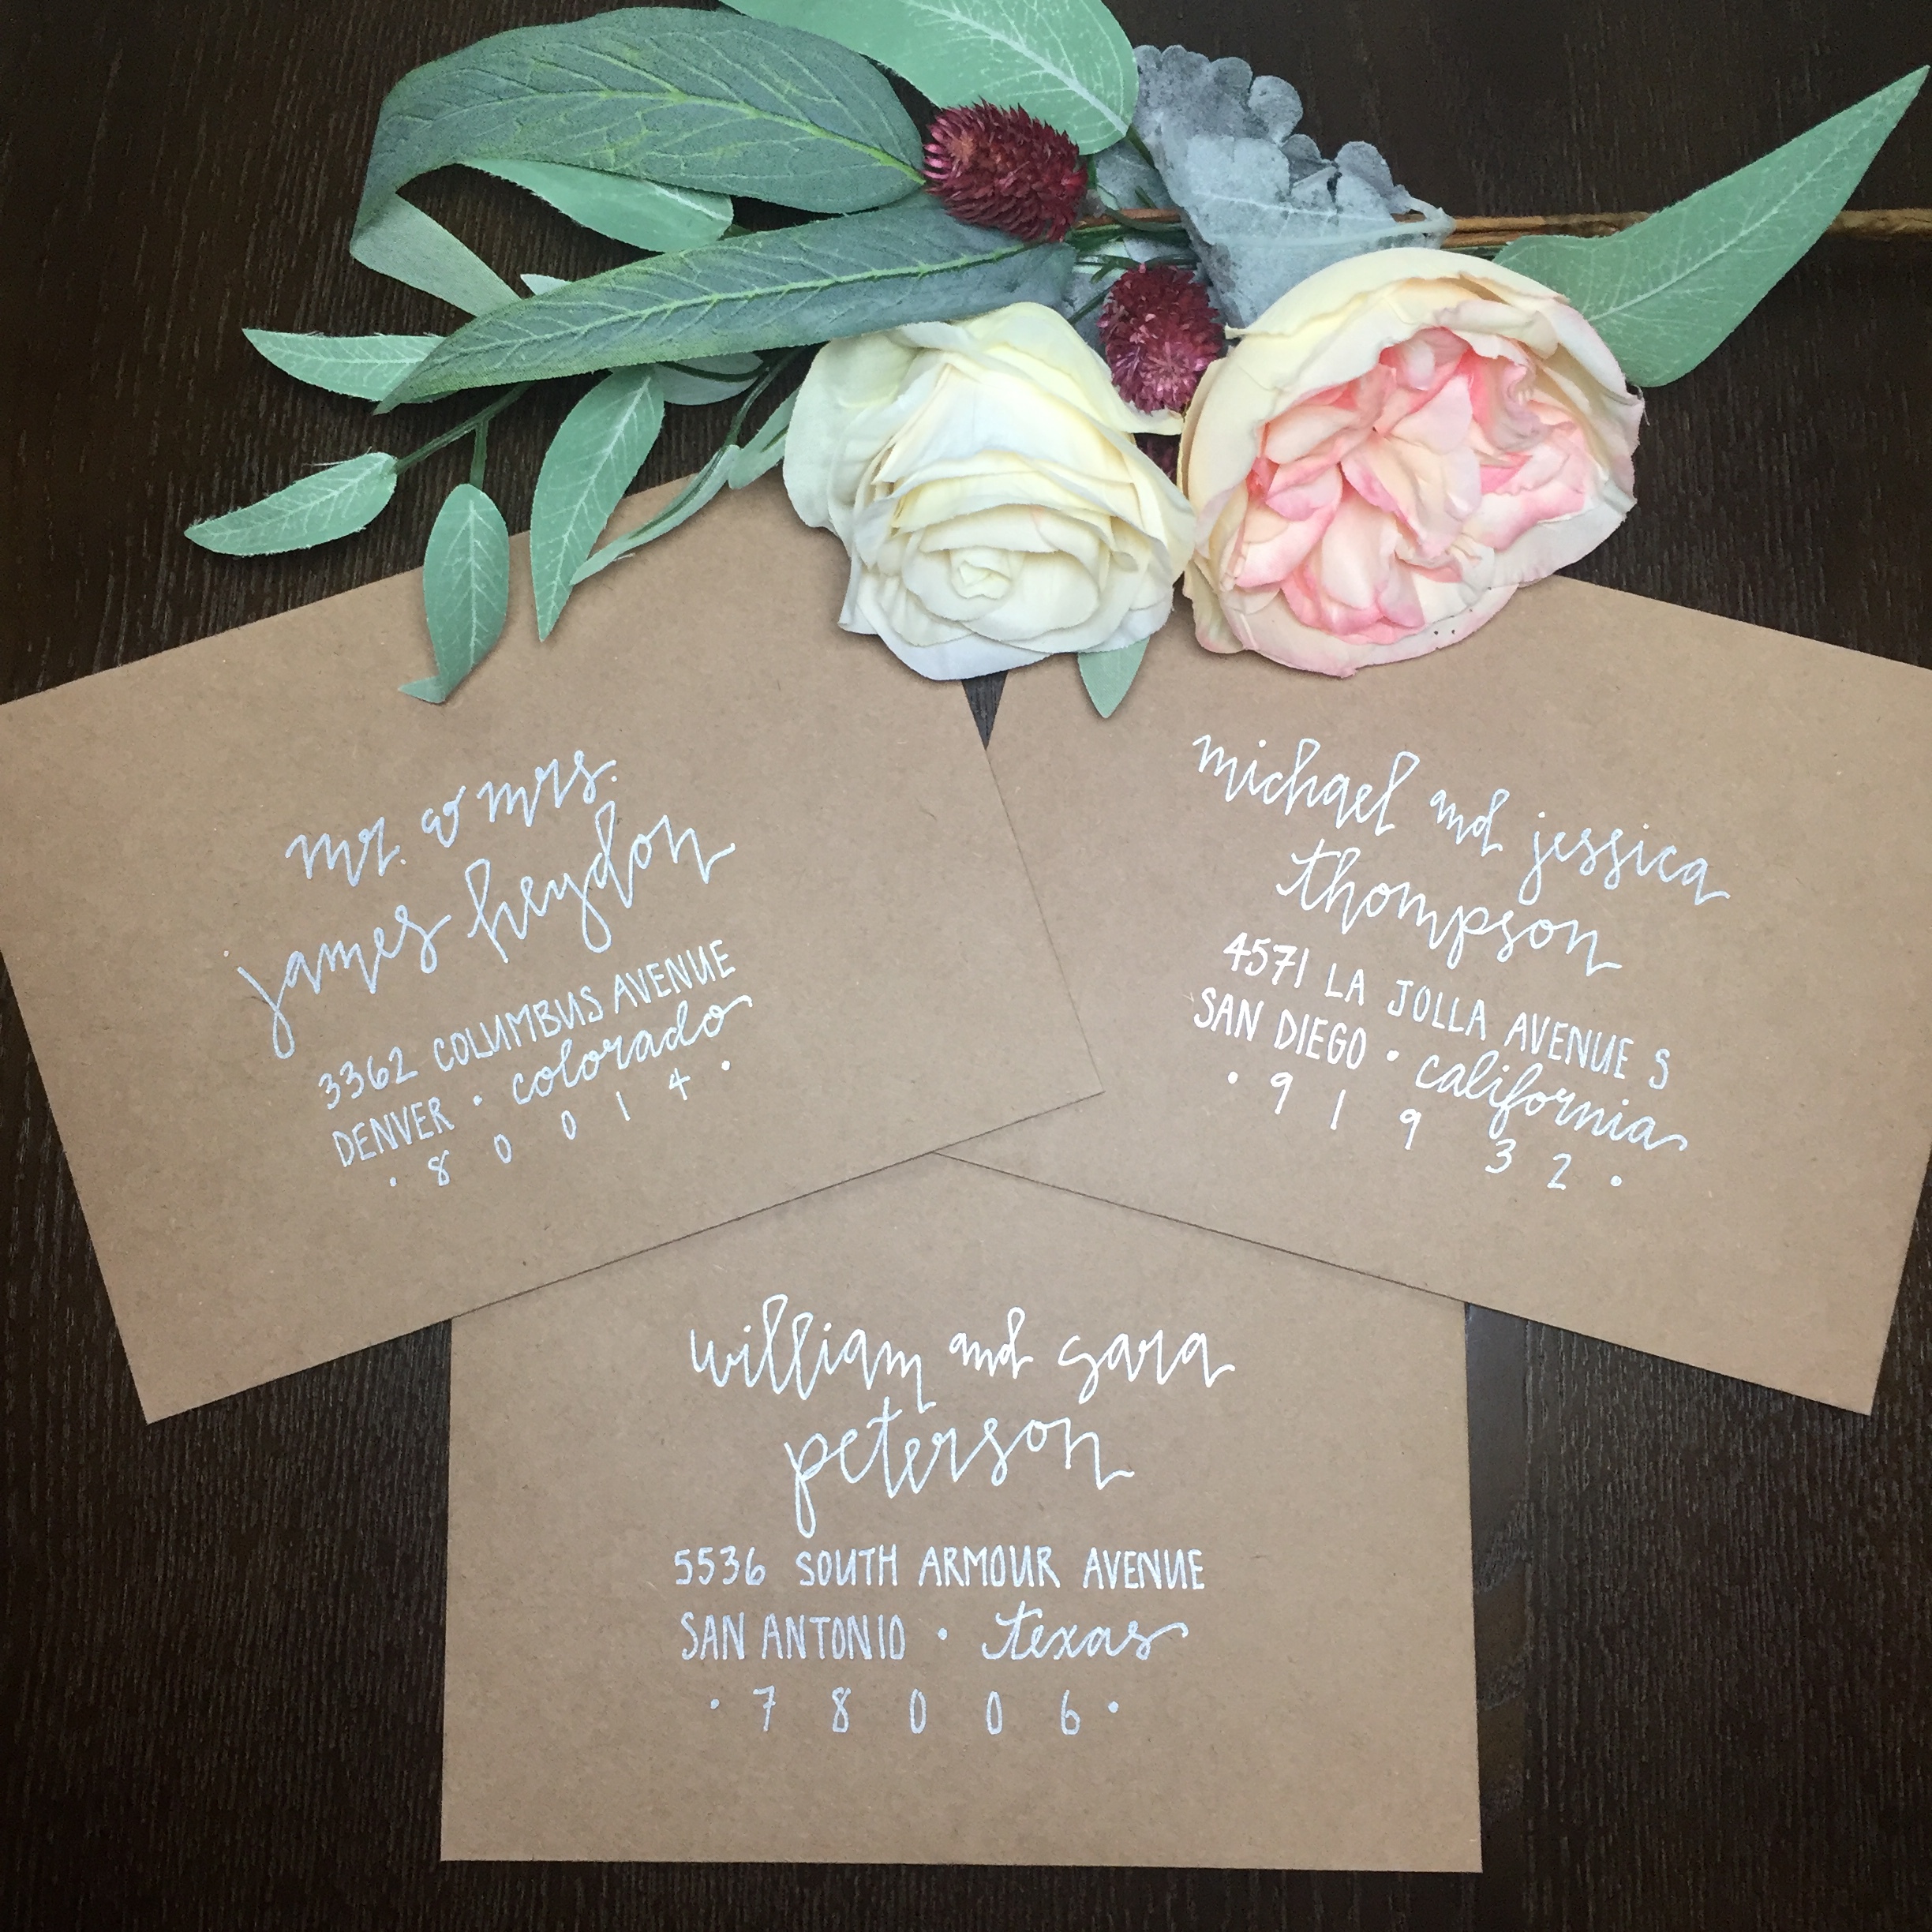 mr. & mrs.
james heydon
3362 COLUMBUS AVENUE
DENVER • colorado
• 8 0 0 1 4 •
michael and jessica
thompson
4571 LA JOLLA AVENUE S
SAN DIEGO • california
• 9 1 9 3 2 •
william and sara
peterson
5536 SOUTH ARMOUR AVENUE
SAN ANTONIO • texas
• 7 8 0 0 6 •